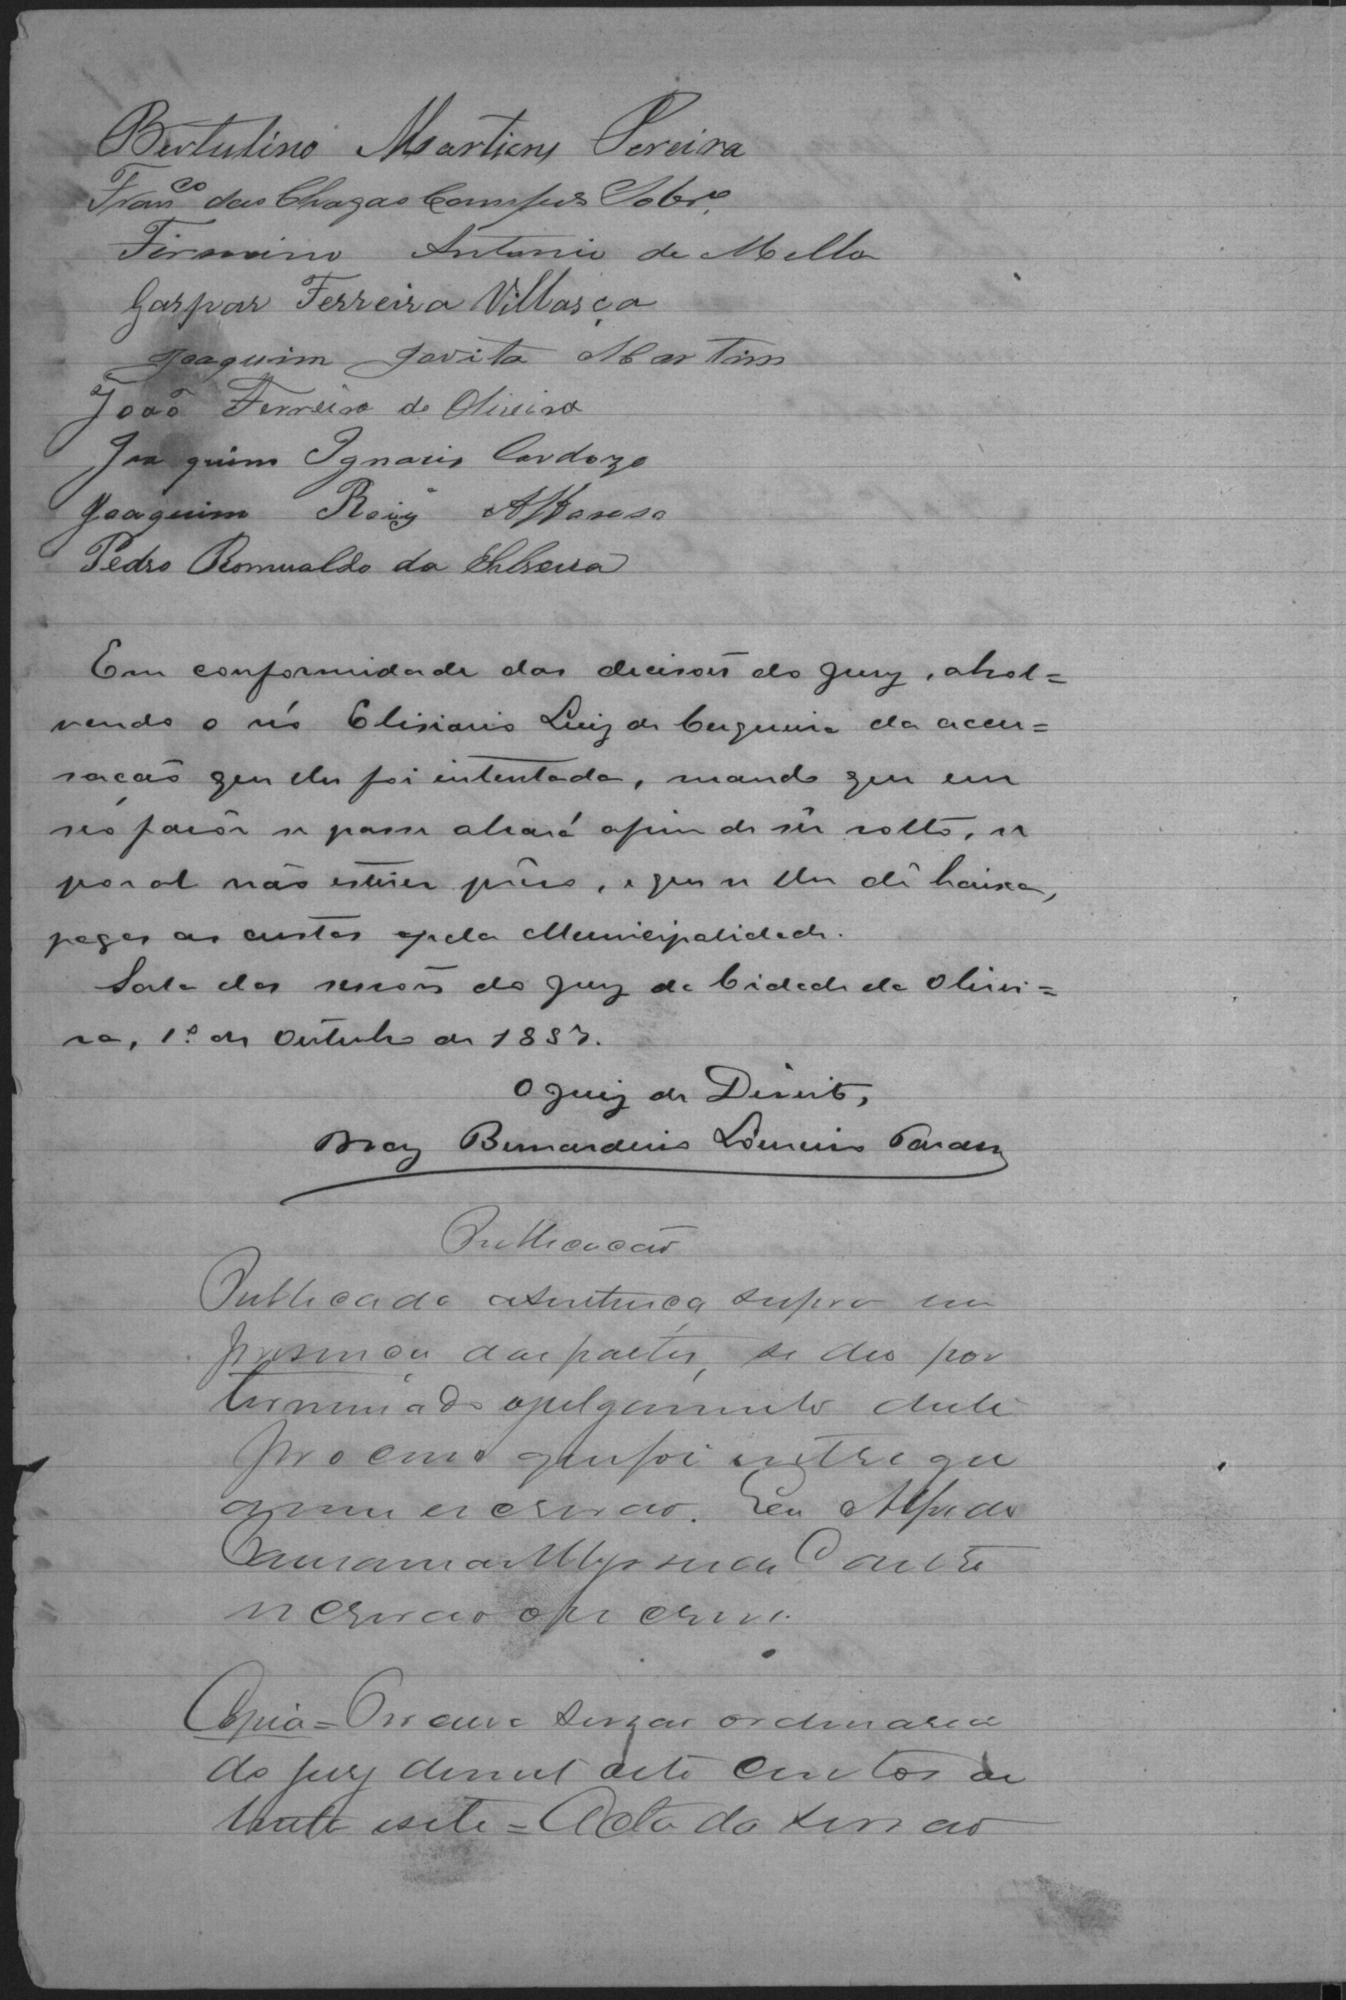 Bertulino Martins Pereira
Fran.co das Chagas Campos Sobr.o
Firmino Antonio de Mello
Gaspar Ferreira Villaça
Joaquim Jovita Martins
João Ferreira de Oliveira
Joaquim Ignacio Cardozo
Joaquim Roiz Affonso
Pedro Romualdo da Silveira
Em conformidade das decisões do Jury, absol=
vendo o réo Elisiario Luiz de Cerqueira da accu=
sação que lhe foi intentada, mando que em
seo favôr se passe alvará afim de sêr solto, se
por al não estiver prêso, e que se lhe dê baixa,
pagas as custas pela Municipalidade.
Sala das sessões do Jury da Cidade de Olivei=
ra, 1.º de Outubro de 1887.
O Juiz de Direito,
Braz Bernardino Loureiro
Publicação
Publicada a sentença supra em
presença das partes, se deo por
terminado o julgamento deste
processo que foi entregue
a mim escrivão. Eu Alfredo
escrivão o escrevi.
Copia = sessão ordinaria
do jury de mil oito centos oi
tenta e sete = Acta da sessão